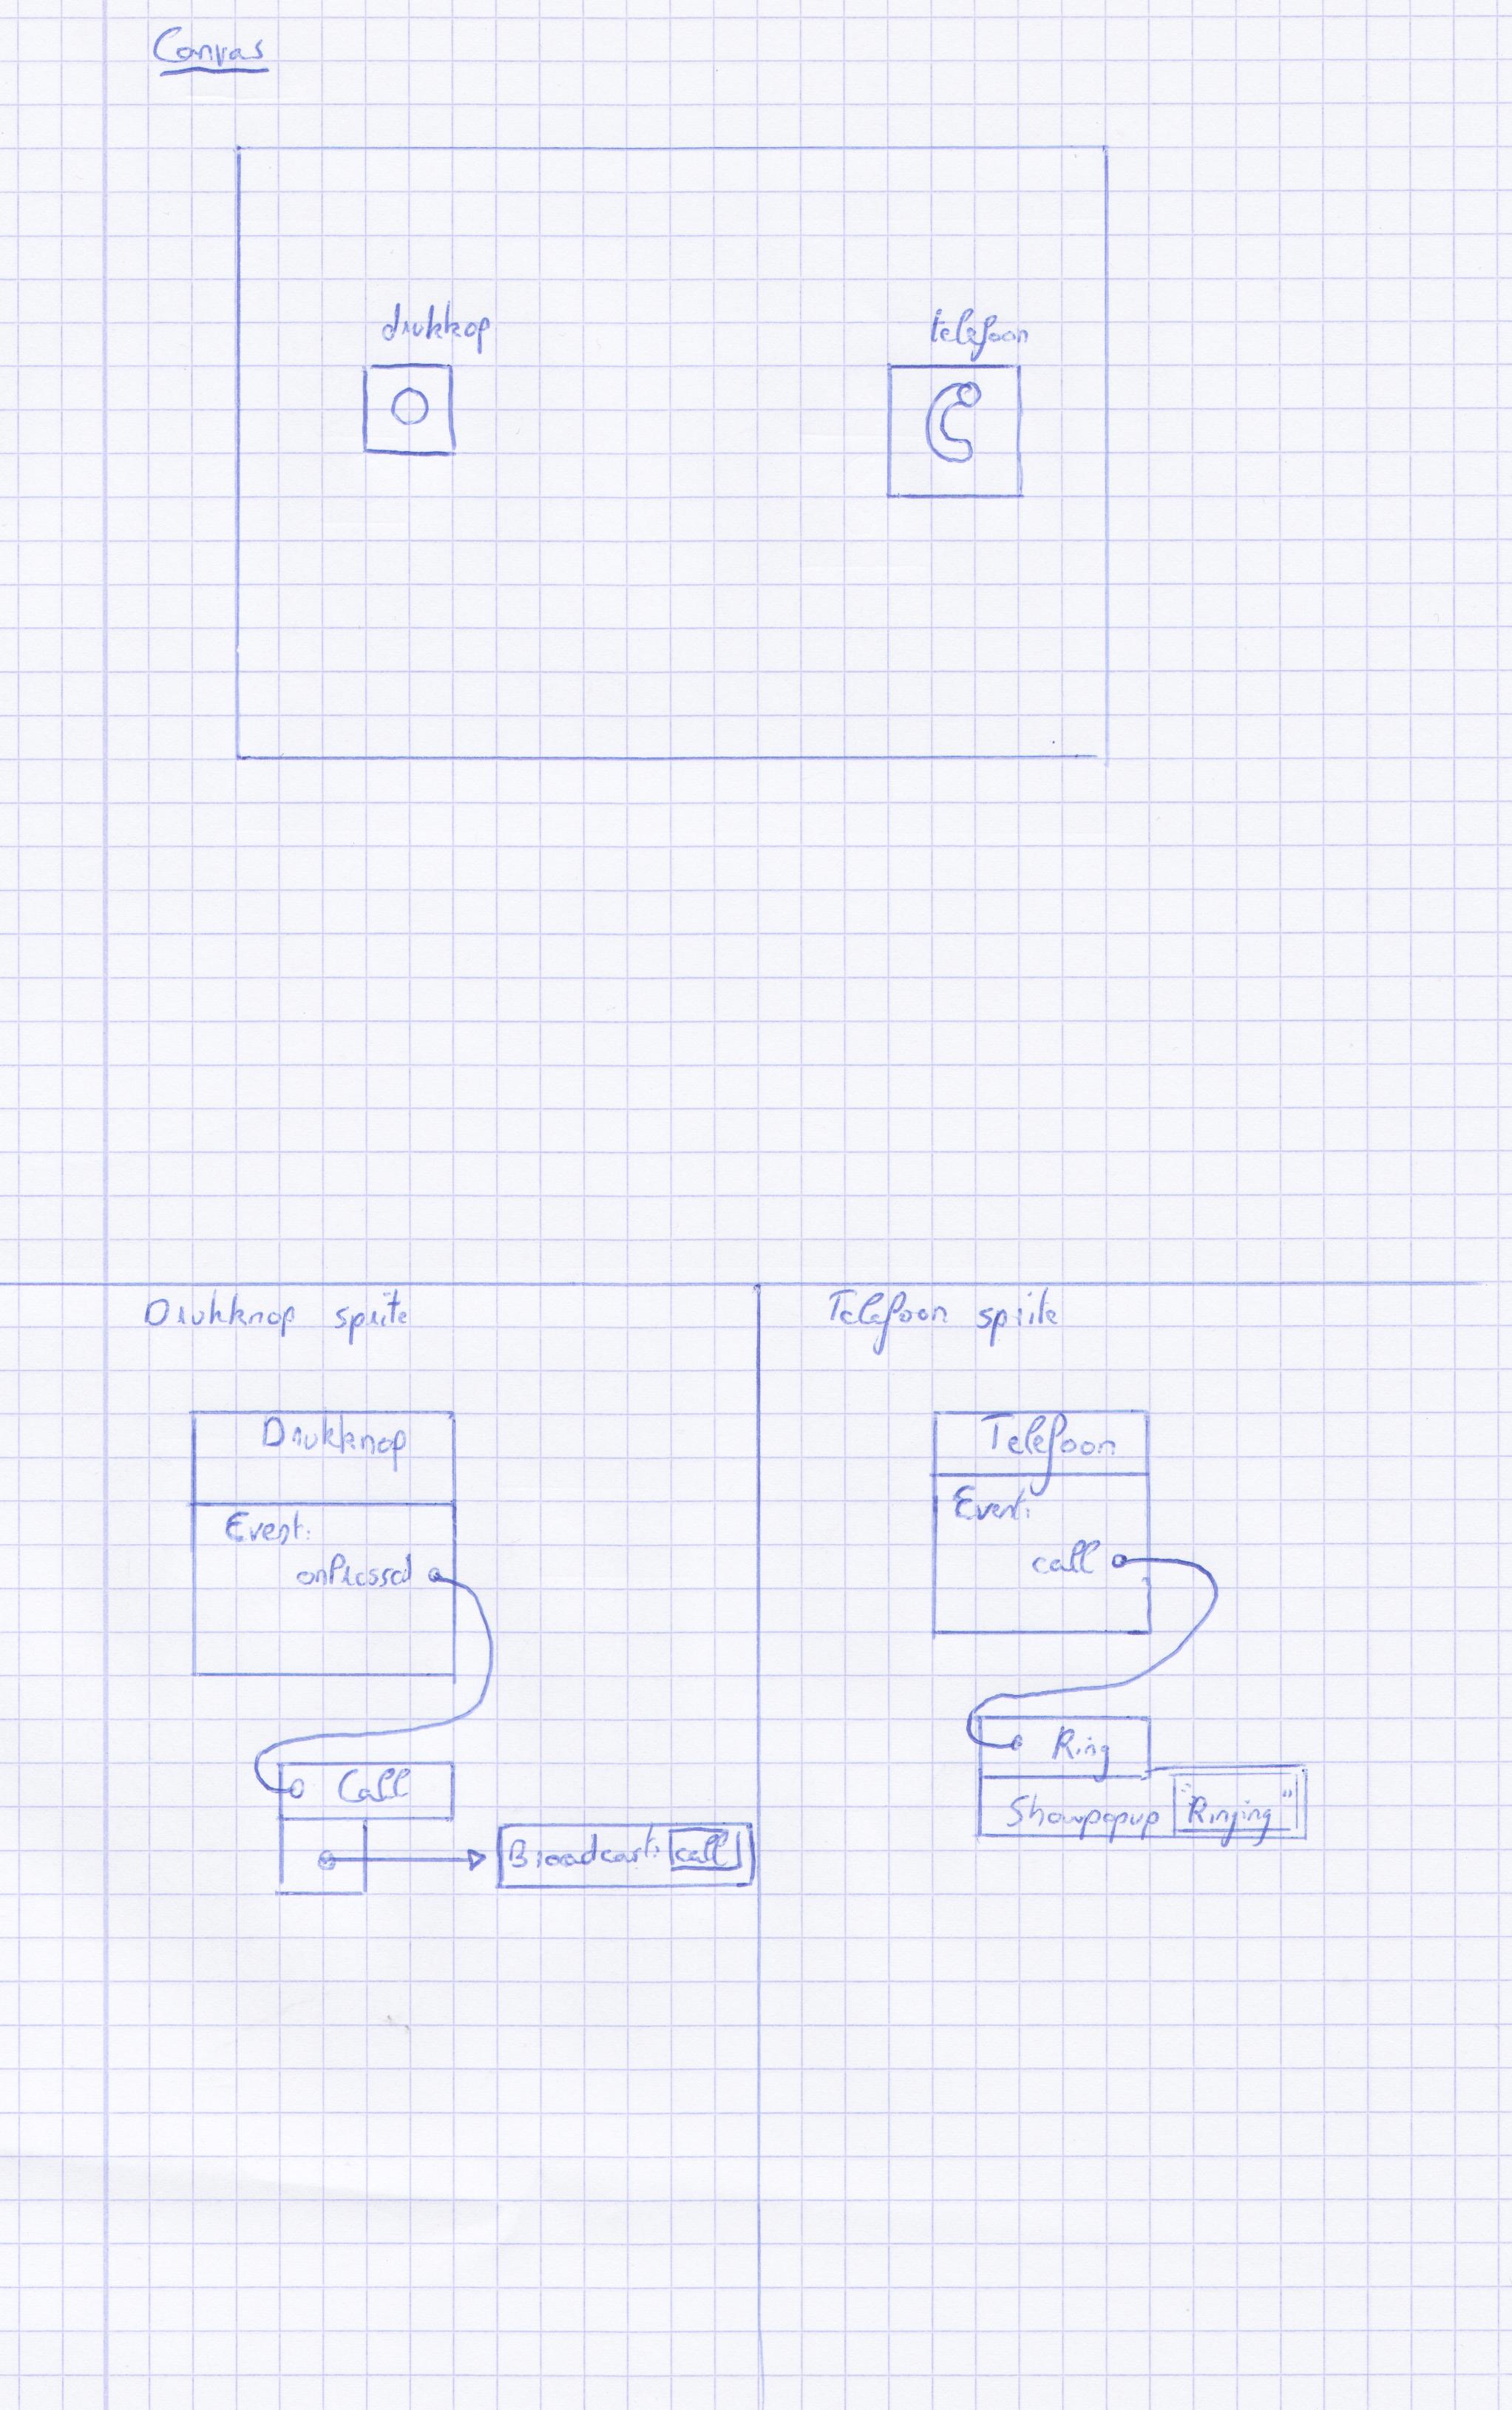 Canvas
drukkop
telefoon
Drukknop sprite
Drukknop
Event:
onPressed
Call
Broadcast: call
Telefoon sprite
Telefoon
Event:
call
Ring
Showpopup "Ringing"